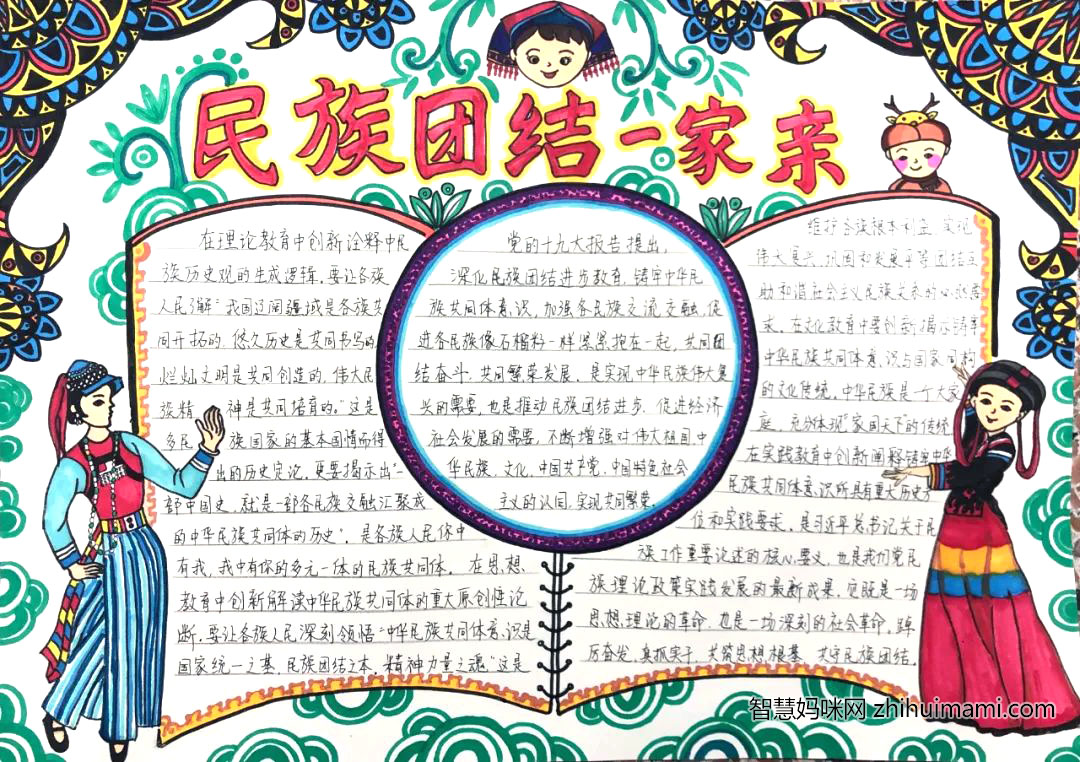 民族团结一家亲
在理论教育中创新诠释中民
族历史观的生成逻辑，要让各族
人民了解“我国辽阔疆域是各族共
同开拓的，悠久历史是共同书写的
烂灿文明是共同创造的，伟大民
族精 神是共同培育的。”这是
多民 族国家的基本国情而得
出的历史定论，更要揭示出“一
部中国史，就是一部各民族交融汇聚成
的中华民族共同体的历史”，是各族人民休中
有我，我中有你的多元一体的民族共同体。在思想
教育中创新解读中华民族共同体的重大原创性论
断，要让各族人民深刻领悟“中华民族共同体意识是
国家统一之基，民族团结之本，精神力量之魂”这是
党的十九大报告提出，
深化民族团结进步教育，铸牢中华民
族共同体意识，加强各民族交流交融，促
进各民族像石榴籽一样紧紧抱在一起，共同团
结奋斗，共同繁荣发展，是实现中华民族伟大复
兴的需要，也是推动民族团结进步，促进经济
社会发展的需要，不断增强对伟大祖国中
华民族，文化，中国共产党，中国特色社会
主义的认同，实现共同繁荣。
维护各族根本利益，实现
伟大复兴，巩固和发展平等团结互
助和谐社会主义民族关系的必然要
求。在文化教育中要创新揭示铸牢
中华民族共同体意识与国家同构
的文化传统，中华民族是一个大家
庭，充分体现“家国天下的传统
在实践教育中创新阐释铸牢中华
民族共同体意识所具有重大历史方
位和实践要求，是习近平总书记关于民
族工作重要论述的核心要义，也是我们党民
族理论政策实践发展的最新成果，它既是一场
思想理论的革命，也是一场深刻的社会革命，踔
厉奋发，真抓实干，共筑思想根基，共守民族团结。
智慧妈咪网 zhihuimami.com